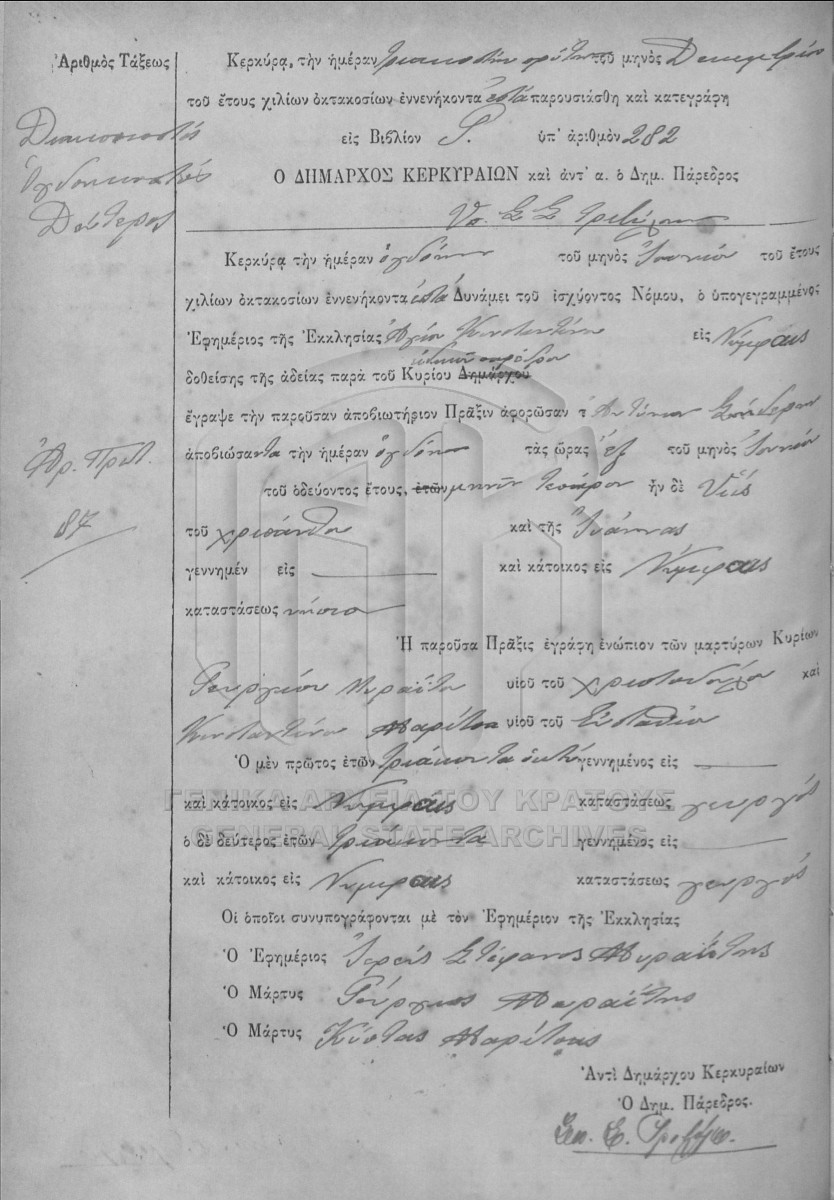 Ἀριθμὸς Τάξεως
Διακοσιοστός
Ὀγδοηκοστός
Δεύτερος
Κερκύρᾳ, τὴν ἡμέραν τριακοστὴν πρώτην τοῦ μηνὸς Δεκεμβρίου
τοῦ ἔτους χιλίων ὀκτακοσίων ἐννενήκοντα ἑπτὰ παρουσιάσθη καὶ κατεγράφη
εἰς Βιβλίον ὑπ' ἀριθμὸν 282
Ὁ ΔΗΜΑΡΧΟΣ ΚΕΡΚΥΡΑΙΩΝ καὶ ἀντ' α. ὁ Δημ. Πάρεδρος
Κερκύρᾳ τὴν ἡμέραν ὀγδόην τοῦ μηνὸς Ἰουνίου τοῦ ἔτους
χιλίων ὀκτακοσίων ἐννενήκοντα ἑπτά Δυνάμει τοῦ ἰσχύοντος Νόμου, ὁ ὑπογεγραμμένος
Ἐφημέριος τῆς Ἐκκλησίας Ἁγίου Κωνσταντίνου εἰς Νύμφαις
δοθείσης τῆς ἀδείας παρὰ τοῦ Κυρίου Δημάρχου
ἔγραψε τὴν παροῦσαν ἀποβιωτήριον Πρᾶξιν ἀφορῶσαν τ Ἀντώνιον
ἀποβιώσαντα τὴν ἡμέραν ὀγδόην τὰς ὥρας ἕξ τοῦ μηνὸς Ἰουνίου
τοῦ ὁδεύοντος ἔτους, ἐτῶν μηνῶν τεσσάρων ἦν δὲ Υἱός
Ἀρ. Πρωτ.
87
τοῦ Χρισάνθου καὶ τῆς Ἰωάννας
γεννημέν εἰς καὶ κάτοικος εἰς Νύμφαις
καταστάσεως νήπιο
Ἡ παροῦσα Πρᾶξις ἐγράφη ἐνώπιον τῶν μαρτύρων Κυρίων
Γεωργίου Μωραΐτη υἱοῦ τοῦ Χριστοδούλου καὶ
Κωνσταντίνου Μαρίτσα υἱοῦ τοῦ Εὐσταθίου
Ὁ μὲν πρῶτος ἐτῶν τριάκοντα ὀκτώ γεννημένος εἰς
καὶ κάτοικος εἰς Νύμφαις καταστάσεως γεωργός
ὁ δὲ δεύτερος ἐτῶν τριάκοντα γεννημένος εἰς
καὶ κάτοικος εἰς Νύμφαις καταστάσεως γεωργός
Οἱ ὁποῖοι συνυπογράφονται μὲ τὸν Ἐφημέριον τῆς Ἐκκλησίας
Ὁ Ἐφημέριος Ἱερεὺς Στέφανος Μωραΐτης
Ὁ Μάρτυς Γεώργιος Μωραΐτης
Ὁ Μάρτυς Κώστας Μαρίτσας
Ἀντὶ Δημάρχου Κερκυραίων
Ὁ Δημ. Πάρεδρος.
ΓΕΝΙΚΑ ΑΡΧΕΙΑ ΤΟΥ ΚΡΑΤΟΥΣ
GENERAL STATE ARCHIVES